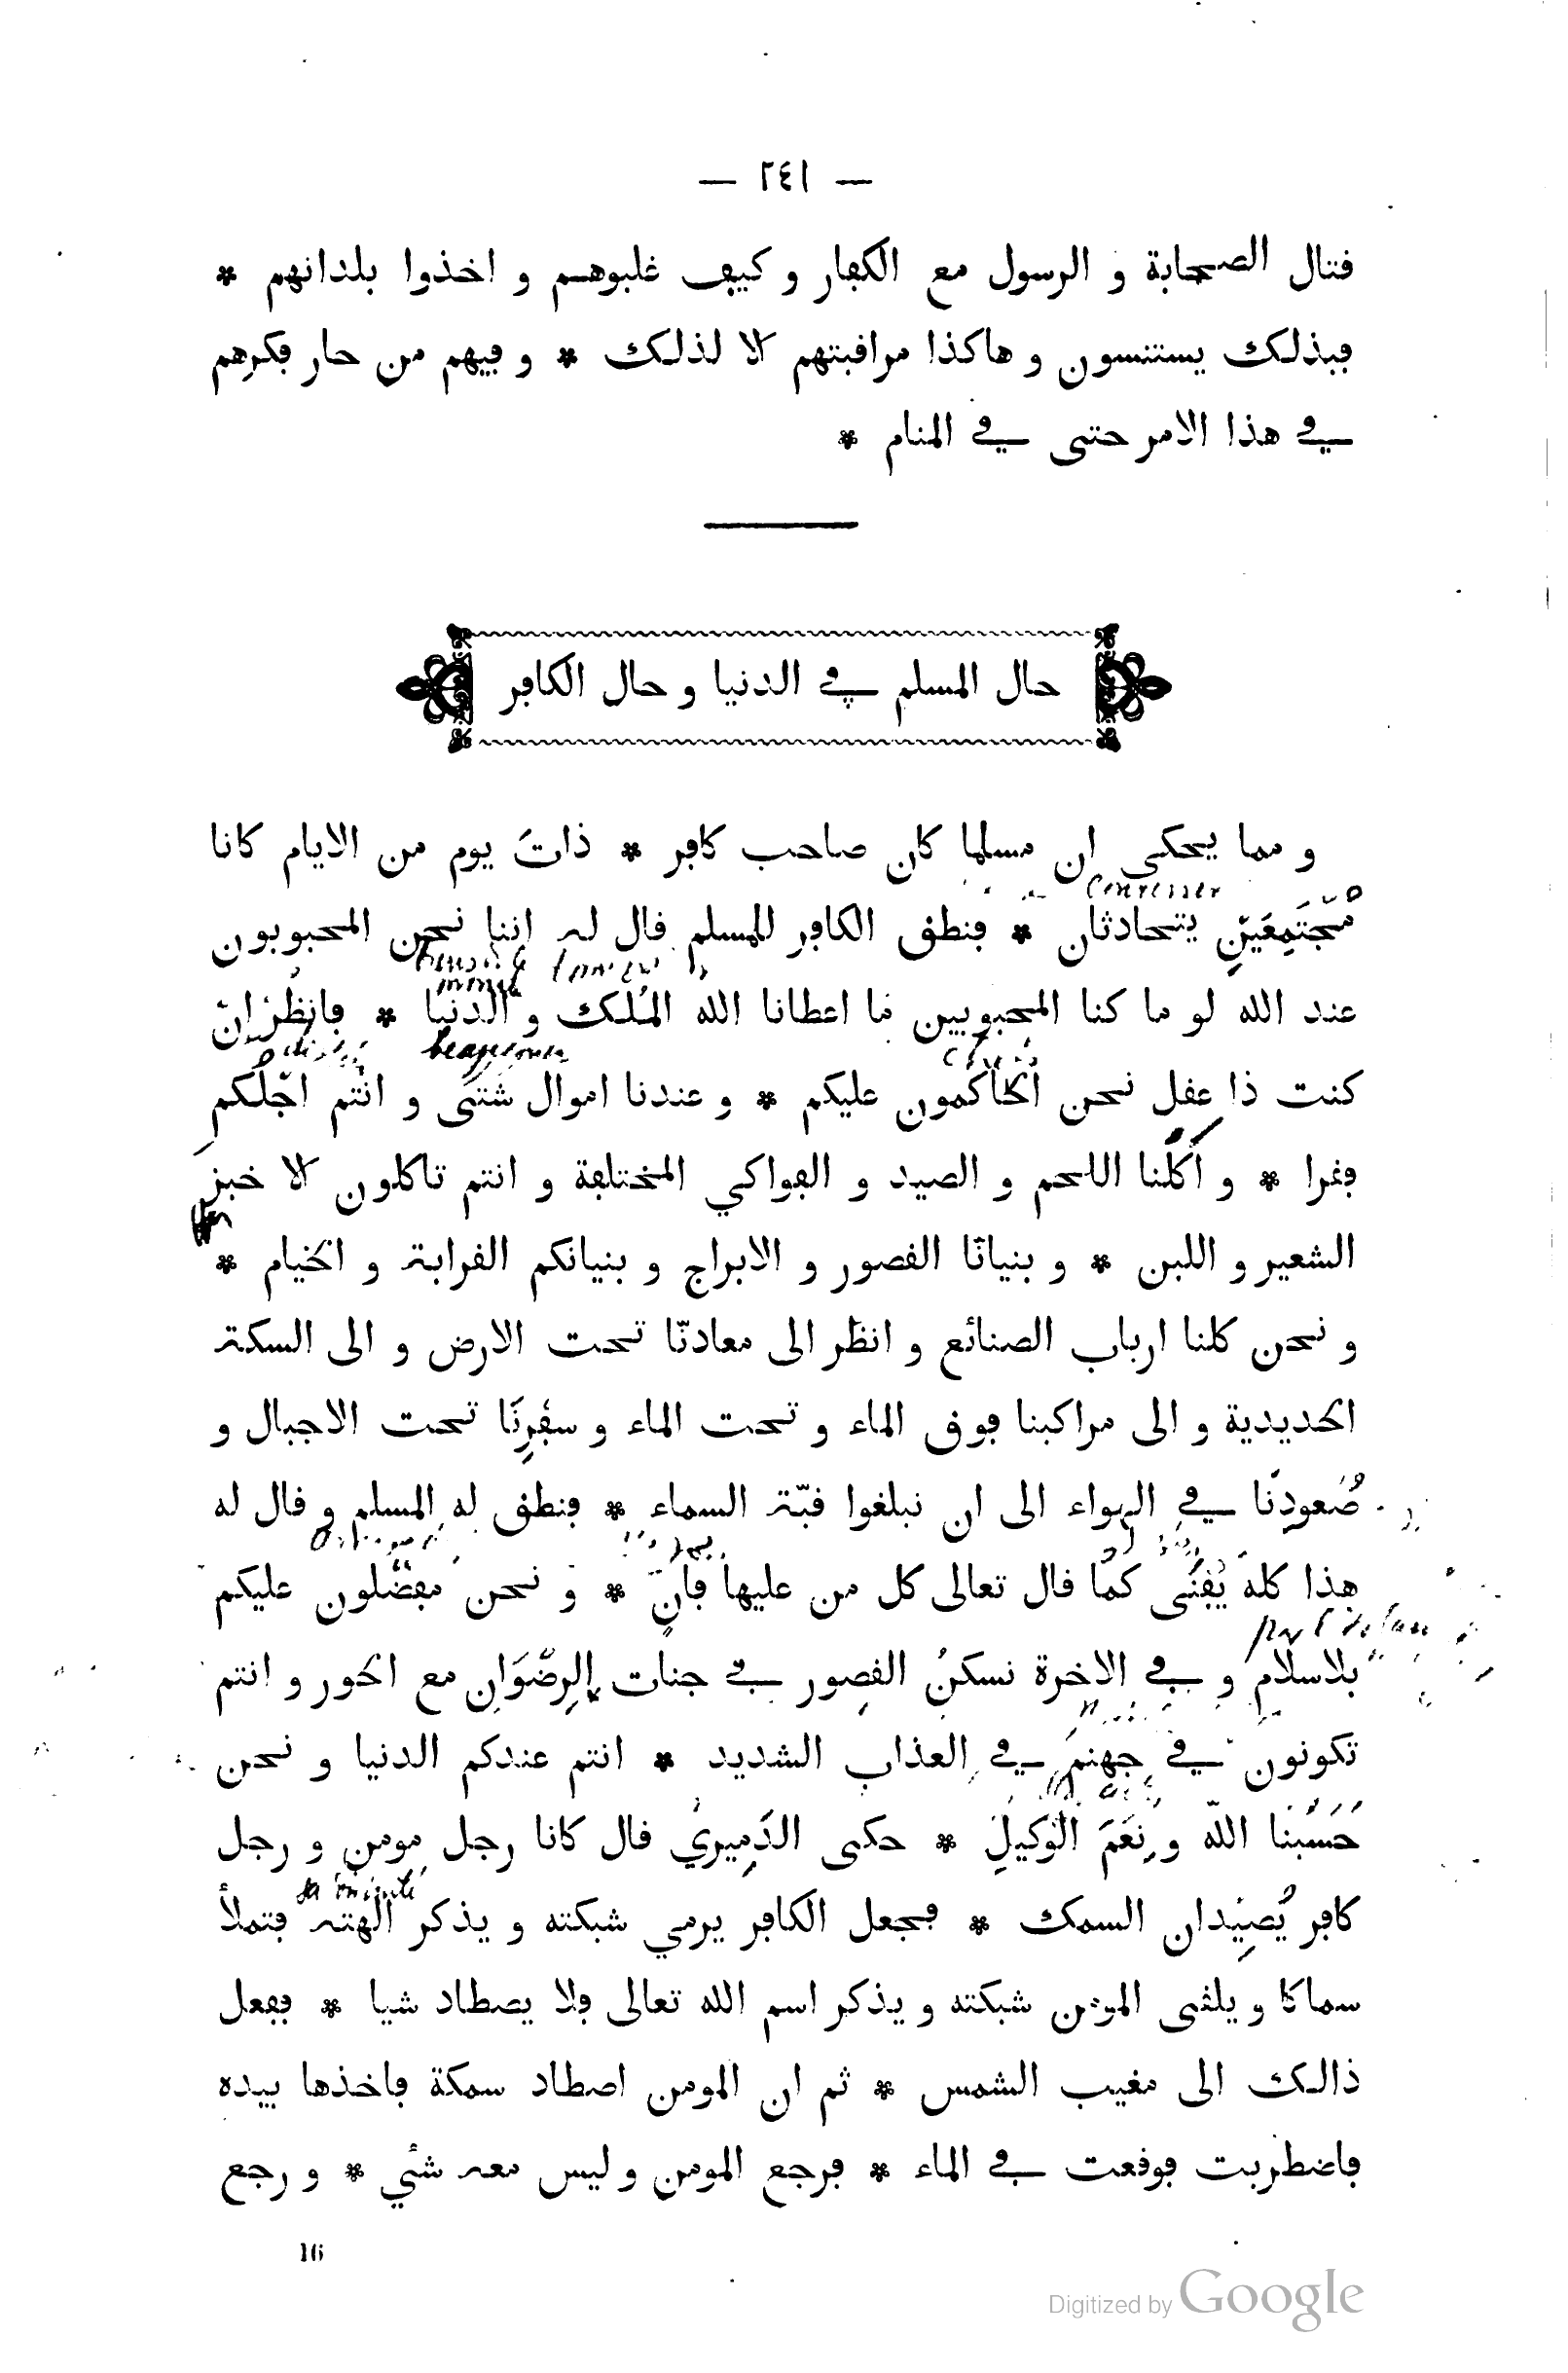 — ٢٤١ —
قتال الصحابة و الرسول مع الكفار و كيف غلبوهم و اخذوا بلدانهم *
فبذلك يستنسون و هاكذا مراقبتهم كلا لذلك * و فيهم من حار فكرهم
في هذا الامر حتى في المنام *
حال المسلم في الدنيا و حال الكافر
و مما يحكى ان مسلما كان صاحب كافر * ذاتَ يوم من الايام كانا
Converser
مُجْتَمِعَيْنِ يتحادثان * فنطق الكافر للمسلم قال له اننا نحن المحبوبون
عند الله لو ما كنا المحبوبين ما اعطانا الله المُلك و الدنيا * فانظُرْ انّ
beaucoup
كنت ذا عقل نحن الحاكمون عليكم * و عندنا اموال شتى و انتم اجّلكم
فقرا * و اكلنا اللحم و الصيد و الفواكي المختلفة و انتم تاكلون كلا خبز
الشعير و اللبن * و بنياننا القصور و الابراج و بنيانكم القرابة و الخيام *
و نحن كلنا ارباب الصنائع و انظر الى معادنّا تحت الارض و الى السكة
الحديدية و الى مراكبنا فوق الماء و تحت الماء و سفرِنَا تحت الاجبال و
صُعودِنَا في الهواء الى ان نبلغوا قبّة السماء * فنطق له المسلم و قال له
هذا كله يُفْنَى كمَا قال تعالى كل من عليها فانٍ * و نحن مفضّلون عليكم
بلاسلام و في الاخرة نسكنُ القصور في جنات الرِضْوَان مع الحور و انتم
تكونون في جهنمَ في العذاب الشديد * انتم عندكم الدنيا و نحن
حَسْبُنا اللّه و نِعْمَ الْوَكيلِ * حكى الدَمِيريُ قال كانا رجل مومن و رجل
sa divinité
كافر يُصيْدان السمك * فجعل الكافر يرمي شبكته و يذكر الهته فتملأ
سماكا و يلقى المومن شبكته و يذكر اسم الله تعالى فلا يصطاد شيا * ففعل
ذالك الى مغيب الشمس * ثم ان المومن اصطاد سمكة فاخذها بيده
فاضطربت فوقعت في الماء * فرجع المومن و ليس معه شئي * و رجع
16
Digitized by Google